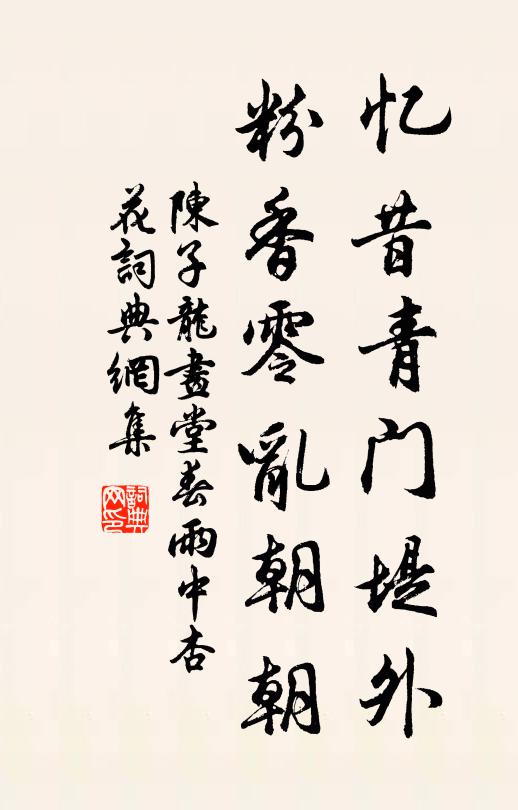 忆昔青门堤外
粉香零亂朝朝
陳子龍畫堂春雨中杏
花詞典網集
詞典
网印